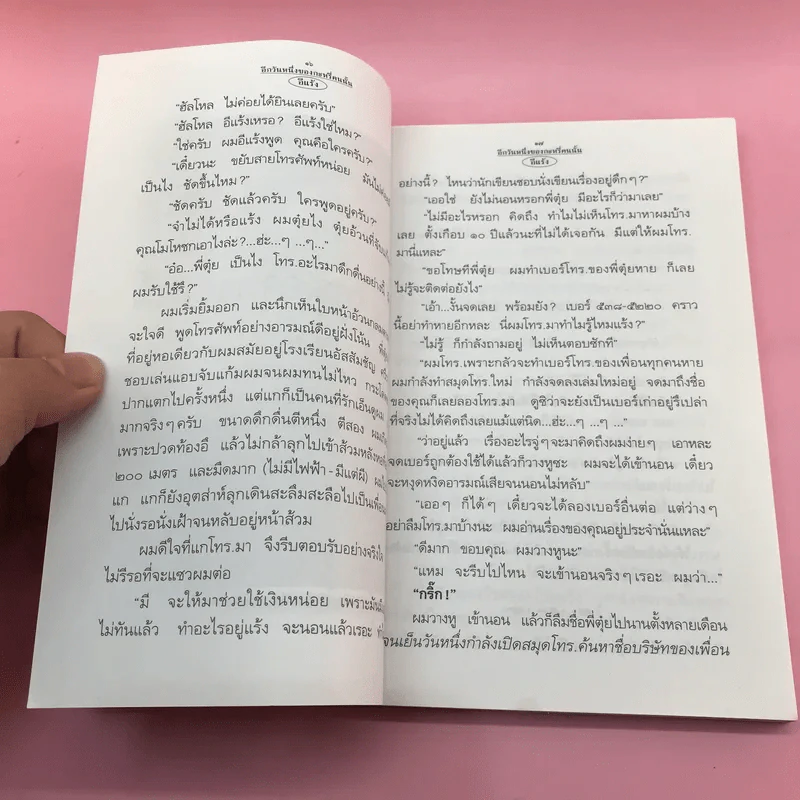 ๑๖
อีกวันหนึ่งของกะหรี่คนนั้น
อีแร้ง
“ฮัลโหล ไม่ค่อยได้ยินเลยครับ”
“ฮัลโหล อีแร้งเหรอ? อีแร้งใช่ไหม?”
“ใช่ครับ ผมอีแร้งพูด คุณคือใครครับ?”
“เดี๋ยวนะ ขยับสายโทรศัพท์หน่อย มัน
เป็นไง ชัดขึ้นไหม?”
“ชัดครับ ชัดแล้วครับ ใครพูดอยู่ครับ?”
“จำไม่ได้หรือแร้ง ผมตุ้ยไง ตุ้ยอ้วนที่
คุณโมโหชกเอาไงล่ะ?...ฮ่ะ...ๆ ...ๆ...”
“อ๋อ...พี่ตุ้ย เป็นไง โทร.อะไรมาดึกดื่นอย่างนี้
ผมรับใช้รึ?”
ผมเริ่มยิ้มออก และนึกเห็นใบหน้าอ้วนกลม
จะใจดี พูดโทรศัพท์อย่างอารมณ์ดีอยู่ฝั่งโน้น
ที่อยู่หอเดียวกับผมสมัยอยู่โรงเรียนอัสสัมชัญ
ชอบเล่นแอบจับแก้มผมจนผมทนไม่ไหว
ปากแตกไปครั้งหนึ่ง แต่แกก็เป็นคนที่รักเอ็นดูผม
มากจริงๆครับ ขนาดดึกดื่นตีหนึ่ง ตีสอง ผม
เพราะปวดท้องอึ แล้วไม่กล้าลุกไปเข้าส้วมหลัง
๒๐๐ เมตร และมืดมาก (ไม่มีไฟฟ้า-มีแต่ผี)
แก แกก็ยังอุตส่าห์ลุกเดินสะลึมสะลือไปเป็นเพื่อน
ไปนั่งรอนั่งเฝ้าจนหลับอยู่หน้าส้วม
ผมดีใจที่แกโทร.มา จึงรีบตอบรับอย่างจริงใจ
ไม่รีรอที่จะแซวผมต่อ
“มี จะให้มาช่วยใช้เงินหน่อย เพราะ
ไม่ทันแล้ว ทำอะไรอยู่แร้ง จะนอนแล้วเรอะ
๑๗
อีกวันหนึ่งของกะหรี่คนนั้น
อีแร้ง
อย่างนี้? ไหนว่านักเขียนชอบนั่งเขียนเรื่องอยู่ดึกๆ?”
“เออใช่ ยังไม่นอนหรอกพี่ตุ้ย มีอะไรก็ว่ามาเลย”
“ไม่มีอะไรหรอก คิดถึง ทำไมไม่เห็นโทร.มาหาผมบ้าง
เลย ตั้งเกือบ ๑๐ ปีแล้วนะที่ไม่ได้เจอกัน มีแต่ให้ผมโทร.
มานี่แหละ”
“ขอโทษทีพี่ตุ้ย ผมทำเบอร์โทร.ของพี่ตุ้ยหาย ก็เลย
ไม่รู้จะติดต่อยังไง”
“เอ้า...งั้นจดเลย พร้อมยัง? เบอร์ ๕๓๘-๕๒๒๐ คราว
นี้อย่าทำหายอีกหละ นี่ผมโทร.มาทำไมรู้ไหมแร้ง?”
“ไม่รู้ ก็กำลังถามอยู่ ไม่เห็นตอบซักที”
“ผมโทร.เพราะกลัวจะทำเบอร์โทร.ของเพื่อนทุกคนหาย
ผมกำลังทำสมุดโทร.ใหม่ กำลังจดลงเล่มใหม่อยู่ จดมาถึงชื่อ
ของคุณก็เลยลองโทร.มา ดูซิว่าจะยังเป็นเบอร์เก่าอยู่รึเปล่า
ที่จริงไม่ได้คิดถึงเลยแม้แต่นิด...ฮ่ะ...ๆ ...ๆ ...”
“ว่าอยู่แล้ว เรื่องอะไรจู่ๆจะมาคิดถึงผมง่ายๆ เอาหละ
จดเบอร์ถูกต้องใช้ได้แล้วก็วางหูซะ ผมจะได้เข้านอน เดี๋ยว
จะหงุดหงิดอารมณ์เสียจนนอนไม่หลับ”
“เออๆ ก็ได้ๆ เดี๋ยวจะได้ลองเบอร์อื่นต่อ แต่ว่างๆ
อย่าลืมโทร.มาบ้างนะ ผมอ่านเรื่องของคุณอยู่ประจำนั่นแหละ”
“ดีมาก ขอบคุณ ผมวางหูนะ”
“แหม จะรีบไปไหน จะเข้านอนจริงๆเรอะ ผมว่า...”
“กริ๊ก!”
ผมวางหู เข้านอน แล้วก็ลืมชื่อพี่ตุ้ยไปนานตั้งหลายเดือน
จนเย็นวันหนึ่งกำลังเปิดสมุดโทร.ค้นหาชื่อบริษัทของเพื่อน